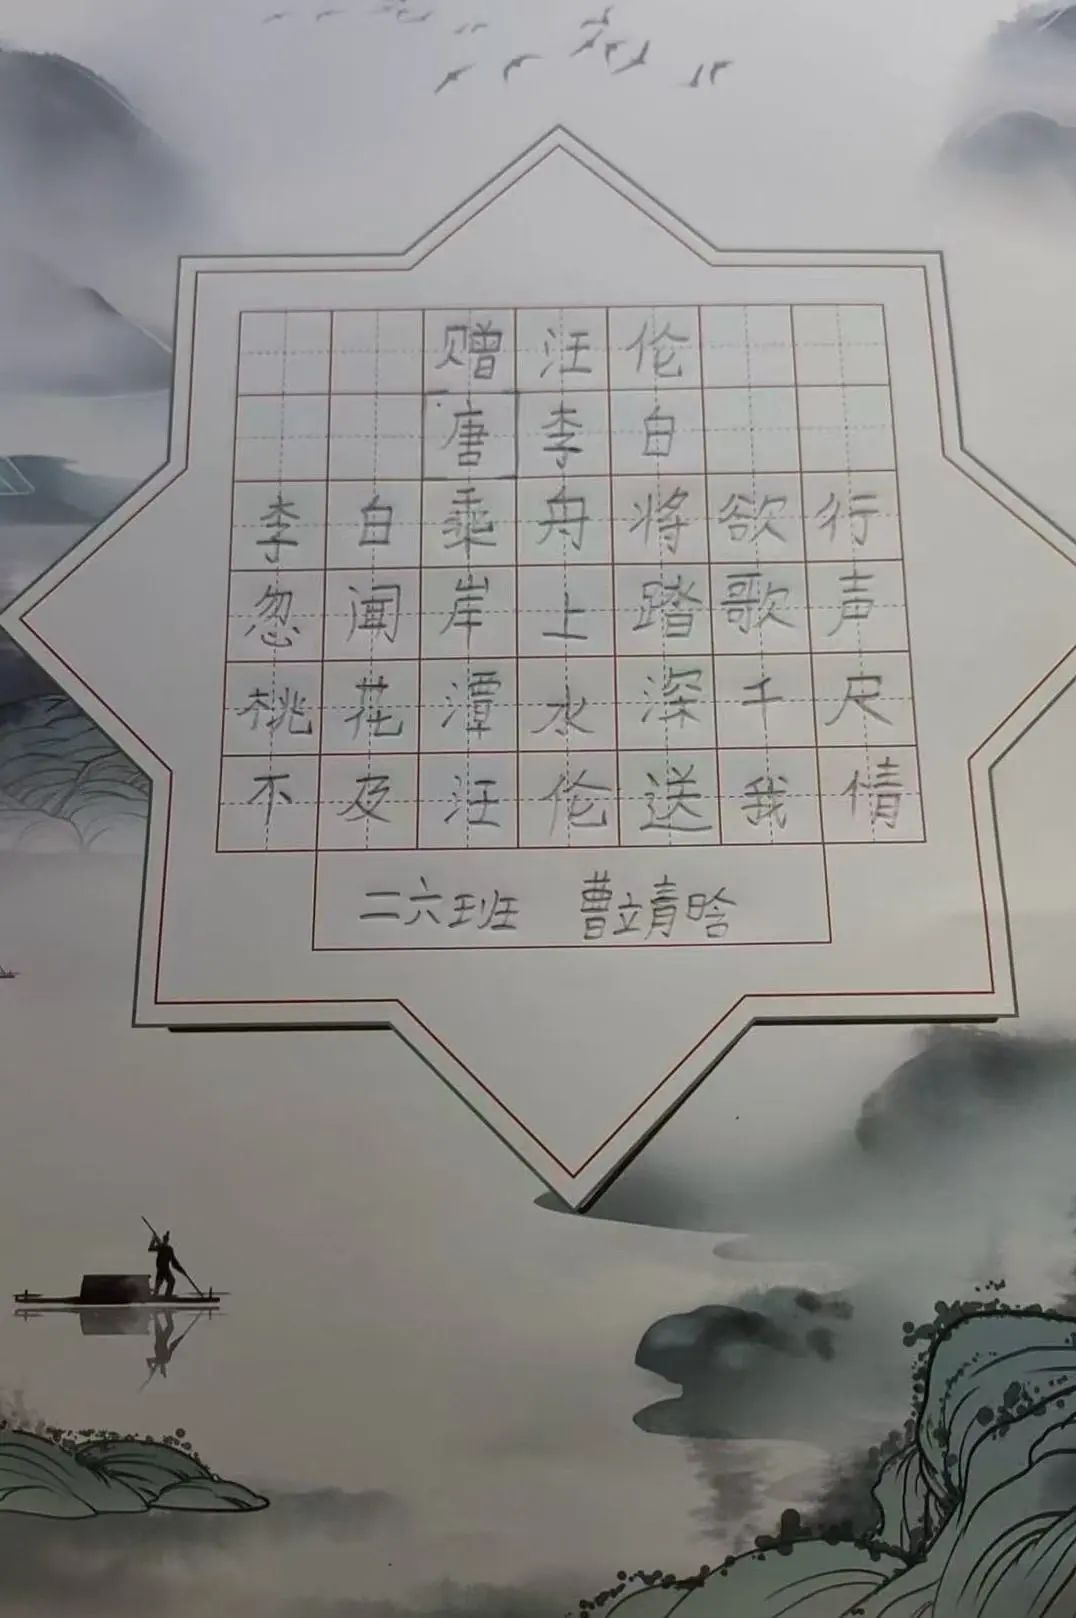 赠汪伦
唐李白
李白乘舟将欲行
忽闻岸上踏歌声
桃花潭水深千尺
不及汪伦送我情
二六班 曹靖晗